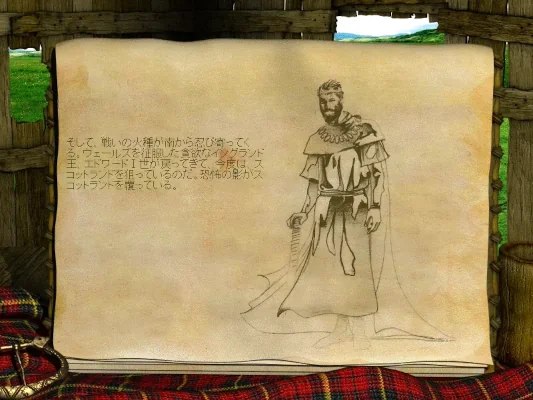 そして、戦いの火種が南から忍び寄ってく
る。ウェールズを征服した貪欲なイングランド
王、エドワードⅠ世が戻ってきて、今度は、ス
コットランドを狙っているのだ。恐怖の影がス
コットランドを覆っている。